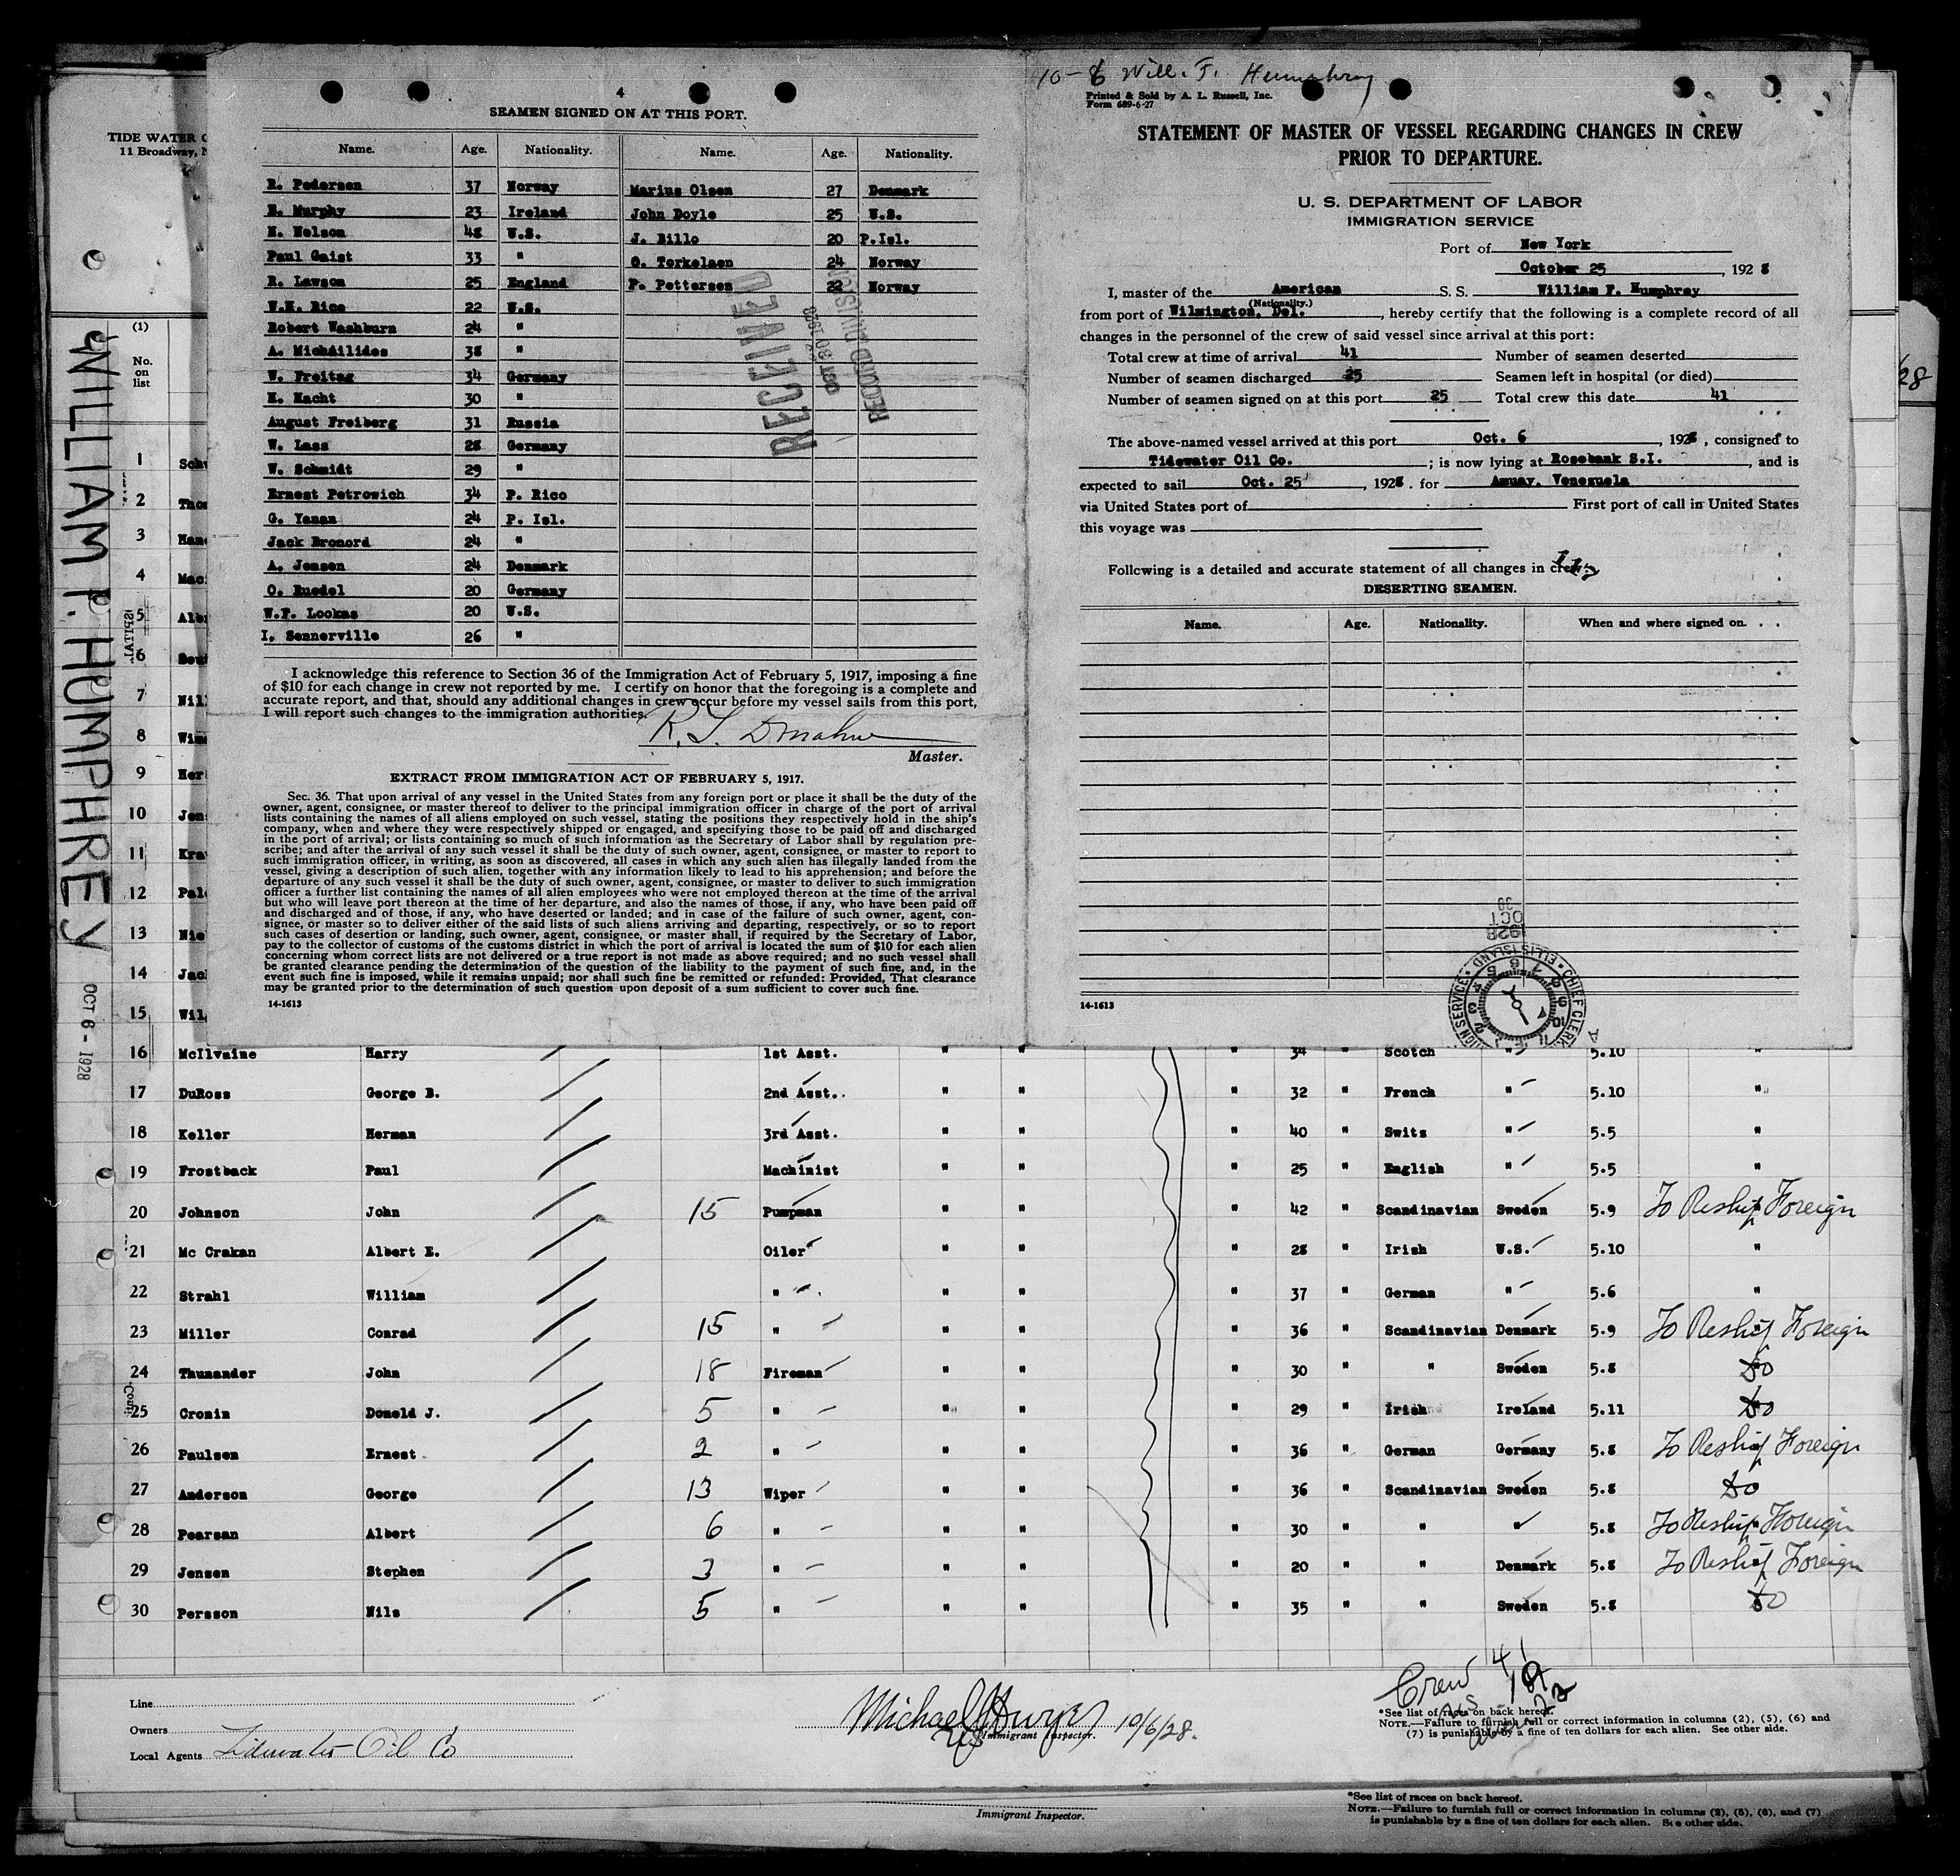 4
SEAMEN SIGNED ON AT THIS PORT.
Name. Age. Nationality. Name. Age. Nationality.
R. Pedersen 37 Norway Marius Olsen 27 Denmark
E. Murphy 23 Ireland John Doyle 25 U.S.
N. Nelson 48 U.S. J. Billo 20 P.Isl.
Paul Gaist 33 " O. Torkelsen 24 Norway
R. Lawson 25 England P. Pettersen 22 Norway
W.H. Rice 22 U.S.
Robert Washburn 24 "
A. Michailides 38 "
W. Freitag 34 Germany
H. Hacht 30 "
August Freiberg 31 Russia
W. Lass 28 Germany
W. Schmidt 29 "
Ernest Petrowich 34 P. Rico
G. Yanan 24 P. Isl.
Jack Bronord 24 "
A. Jensen 24 Denmark
O. Ruedel 20 Germany
W.F. Lookas 20 U.S.
I. Sennerville 26 "
RECEIVED
OCT 30 1928
RECORD DIVISION
I acknowledge this reference to Section 36 of the Immigration Act of February 5, 1917, imposing a fine
of $10 for each change in crew not reported by me. I certify on honor that the foregoing is a complete and
accurate report, and that, should any additional changes in crew occur before my vessel sails from this port,
I will report such changes to the immigration authorities.
Master.
EXTRACT FROM IMMIGRATION ACT OF FEBRUARY 5, 1917.
Sec. 36. That upon arrival of any vessel in the United States from any foreign port or place it shall be the duty of the
owner, agent, consignee, or master thereof to deliver to the principal immigration officer in charge of the port of arrival
lists containing the names of all aliens employed on such vessel, stating the positions they respectively hold in the ship's
company, when and where they were respectively shipped or engaged, and specifying those to be paid off and discharged
in the port of arrival; or lists containing so much of such information as the Secretary of Labor shall by regulation pre-
scribe; and after the arrival of any such vessel it shall be the duty of such owner, agent, consignee, or master to report to
such immigration officer, in writing, as soon as discovered, all cases in which any such alien has illegally landed from the
vessel, giving a description of such alien, together with any information likely to lead to his apprehension; and before the
departure of any such vessel it shall be the duty of such owner, agent, consignee, or master to deliver to such immigration
officer a further list containing the names of all alien employees who were not employed thereon at the time of the arrival
but who will leave port thereon at the time of her departure, and also the names of those, if any, who have been paid off
and discharged and of those, if any, who have deserted or landed; and in case of the failure of such owner, agent, con-
signee, or master so to deliver either of the said lists of such aliens arriving and departing, respectively, or so to report
such cases of desertion or landing, such owner, agent, consignee, or master shall, if required by the Secretary of Labor,
pay to the collector of customs of the customs district in which the port of arrival is located the sum of $10 for each alien
concerning whom correct lists are not delivered or a true report is not made as above required; and no such vessel shall
be granted clearance pending the determination of the question of the liability to the payment of such fine, and, in the
event such fine is imposed, while it remains unpaid; nor shall such fine be remitted or refunded: Provided, That clearance
may be granted prior to the determination of such question upon deposit of a sum sufficient to cover such fine.
14-1613
10-6 Will. F. Humphrey
Printed & Sold by A. L. Russell, Inc.
Form 689-6-27
STATEMENT OF MASTER OF VESSEL REGARDING CHANGES IN CREW
PRIOR TO DEPARTURE.
U. S. DEPARTMENT OF LABOR
IMMIGRATION SERVICE
Port of New York
October 25, 1928
I, master of the American S. S. William F. Humphrey
(Nationality.)
from port of Wilmington, Del., hereby certify that the following is a complete record of all
changes in the personnel of the crew of said vessel since arrival at this port:
Total crew at time of arrival 41 Number of seamen deserted
Number of seamen discharged 25 Seamen left in hospital (or died)
Number of seamen signed on at this port 25 Total crew this date 41
The above-named vessel arrived at this port Oct. 6, 1928, consigned to
Tidewater Oil Co.; is now lying at Rosebank S.I., and is
expected to sail Oct. 25, 1928. for Amuay, Venezuela
via United States port of First port of call in United States
this voyage was
Following is a detailed and accurate statement of all changes in crew:
DESERTING SEAMEN.
Name. Age. Nationality. When and where signed on.
1928
OCT
30
CHIEF CLERK ELLIS ISLAND
14-1613
TIDE WATER
11 Broadway, N
(1)
No.
on
list
WILLIAM F. HUMPHREY
OCT 6 - 1928
28
1
2
3
4
5
6
7
8
9
10
11
12
13
14
15
16 McIlvaine Harry 1st Asst. " " " 34 " Scotch " 5.10
17 DuRoss George B. 2nd Asst. " " " 32 " French " 5.10 "
18 Keller Herman 3rd Asst. " " " 40 " Swits " 5.5 "
19 Frostback Paul Machinist " " " 25 " English " 5.5 "
20 Johnson John 15 Pumpman " " " 42 " Scandinavian Sweden 5.9 To Reship Foreign
21 Mc Crakan Albert E. Oiler " " " 28 " Irish U.S. 5.10 "
22 Strahl William " " " " 37 " German " 5.6 "
23 Miller Conrad 15 " " " " 36 " Scandinavian Denmark 5.9 To Reship Foreign
24 Thunander John 18 Fireman " " " 30 " " Sweden 5.8 do
25 Cronin Donald J. 5 " " " " 29 " Irish Ireland 5.11 do
26 Paulsen Ernest 2 " " " " 36 " German Germany 5.8 To Reship Foreign
27 Anderson George 13 Wiper " " " 36 " Scandinavian Sweden 5.8 do
28 Pearsan Albert 6 " " " " 30 " " " 5.8 To Reship Foreign
29 Jensen Stephen 3 " " " " 20 " " Denmark 5.8 To Reship Foreign
30 Persson Nils 5 " " " " 35 " " Sweden 5.8 do
Line
Owners
Local Agents Tidewater Oil Co
Michael 10/6/28.
Immigrant Inspector.
Crew 41
*See list of races on back hereof.
NOTE.—Failure to furnish full or correct information in columns (2), (5), (6) and
(7) is punishable by a fine of ten dollars for each alien. See other side.
Immigrant Inspector.
*See list of races on back hereof.
NOTE.—Failure to furnish full or correct information in columns (2), (5), (6), and (7)
is punishable by a fine of ten dollars for each alien. See other side.